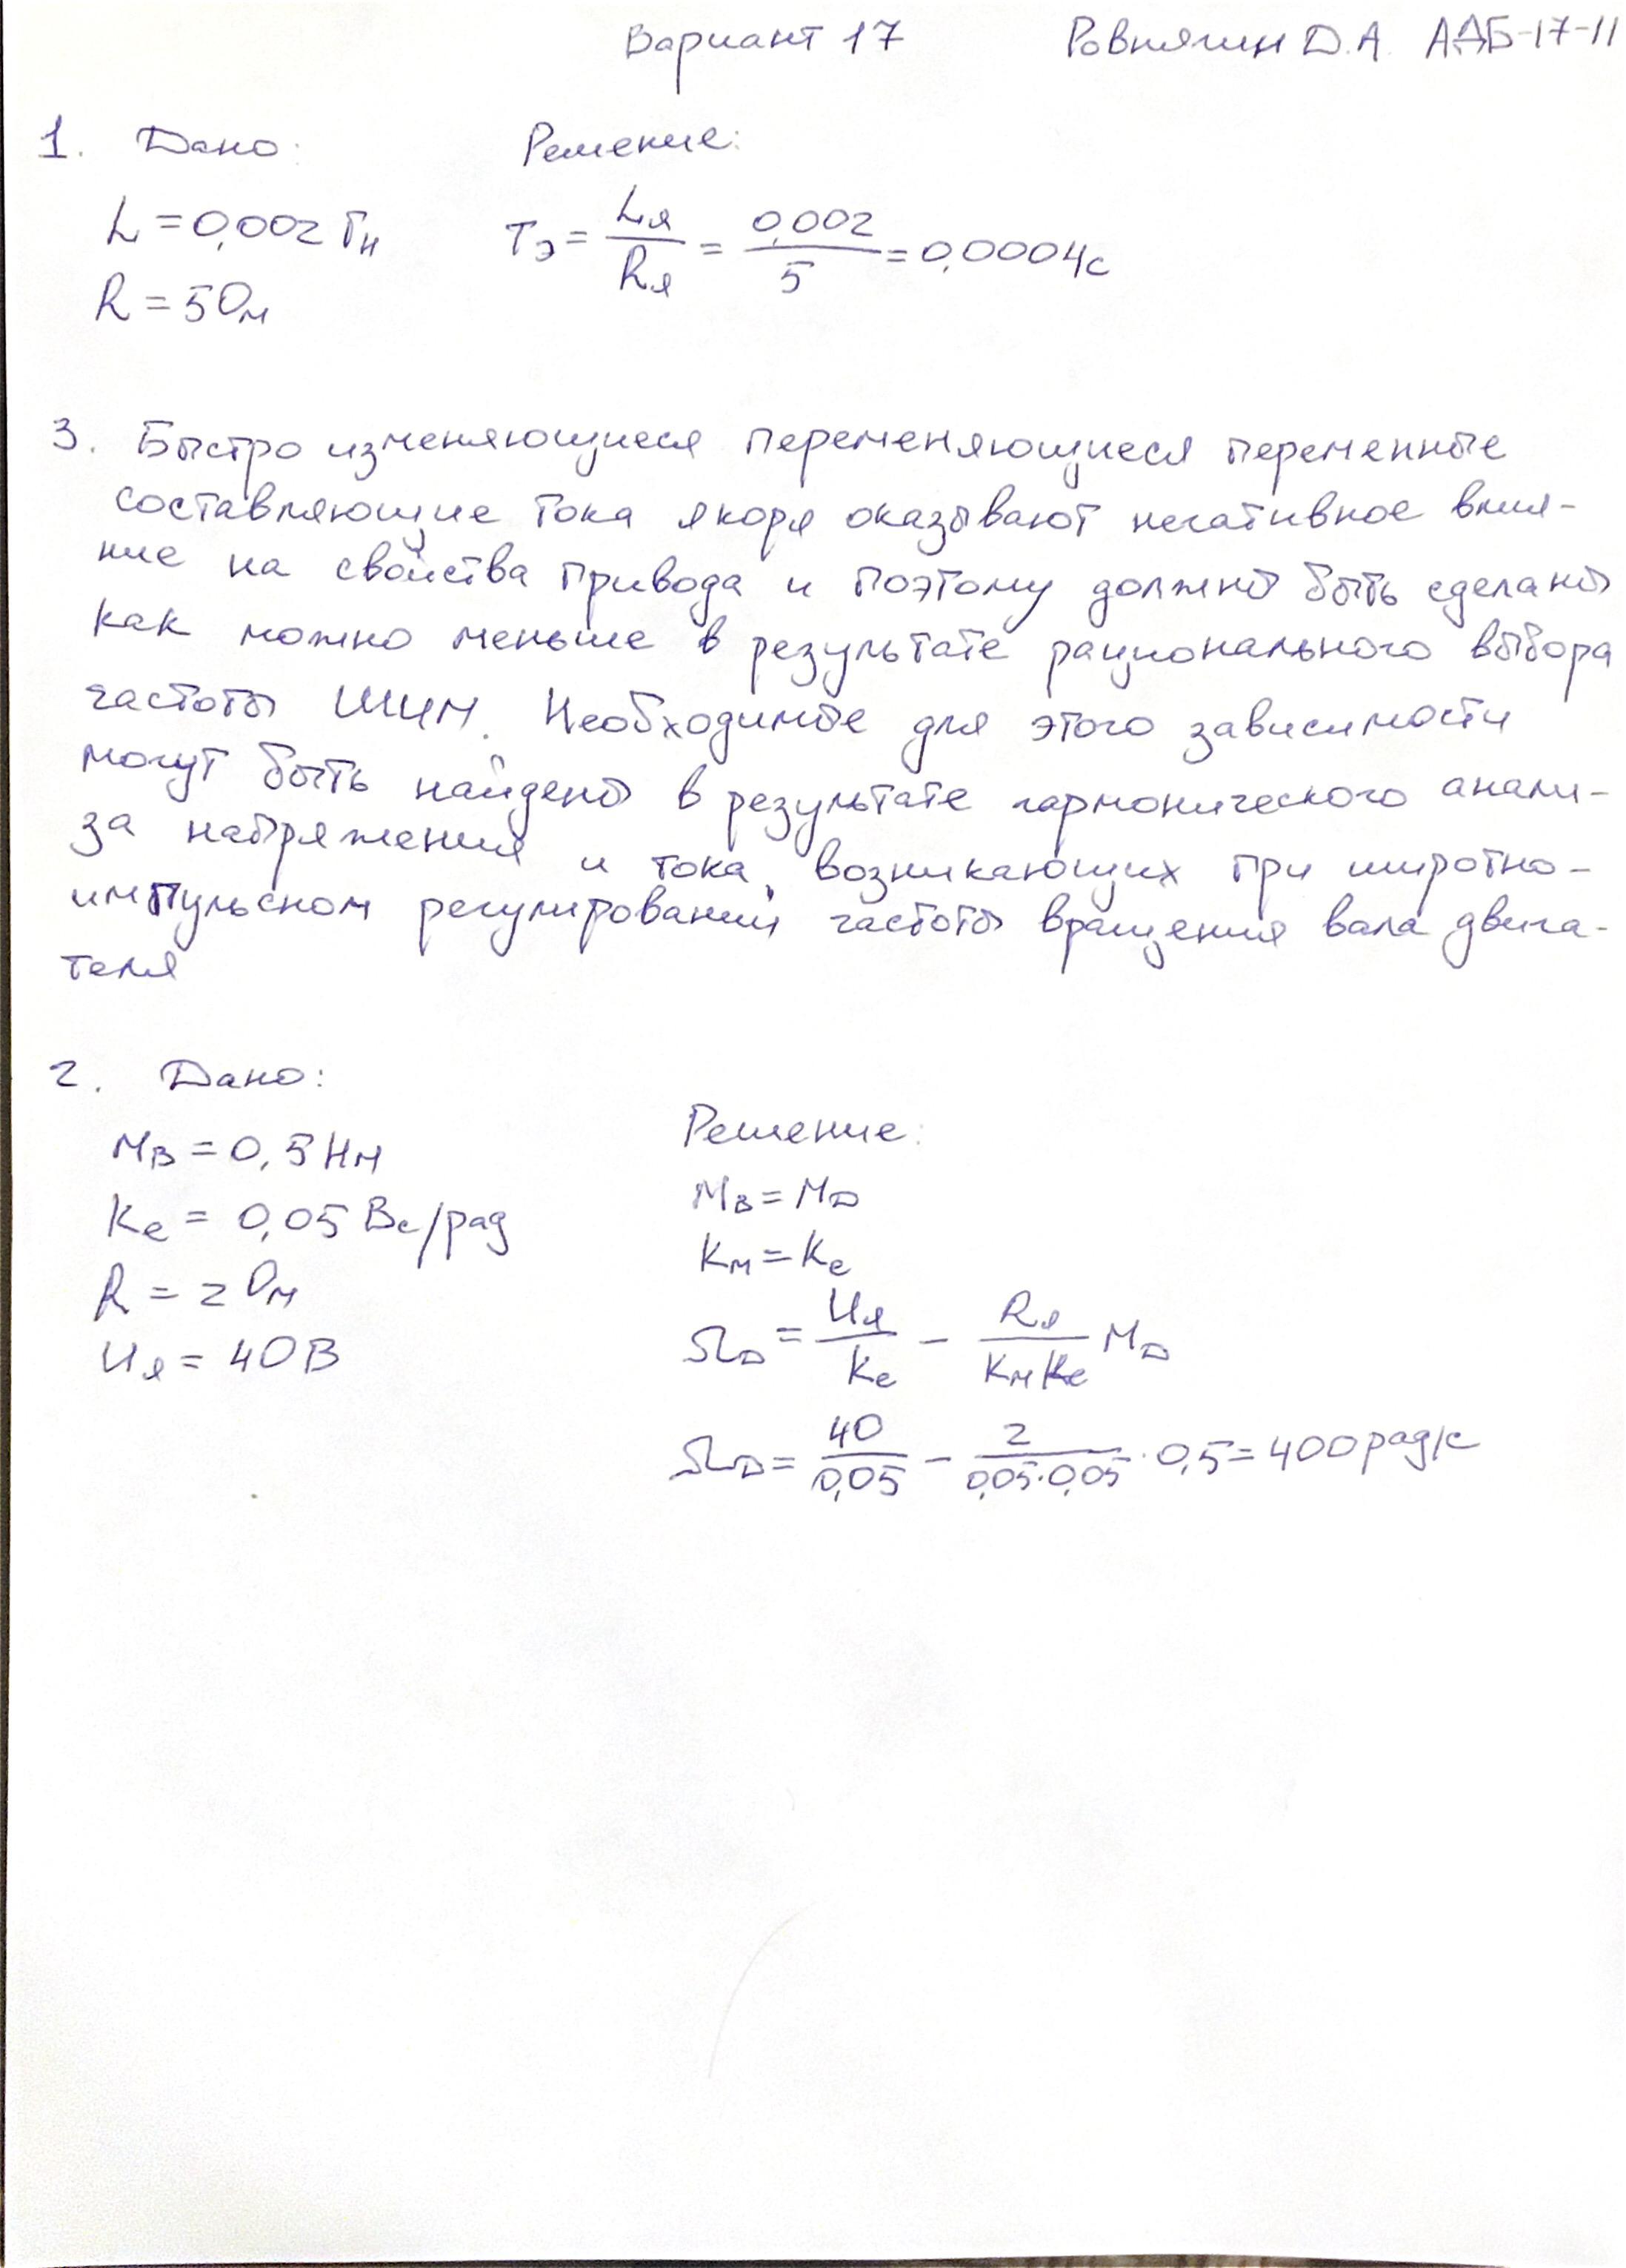 Вариант 17 Ровнягин Д.А. АДБ-17-11
1. Дано: Решение:
L = 0,002 Гн Tэ = Lя/Rя = 0,002/5 = 0,0004с
R = 5 Ом
3. Быстро изменяющиеся переменяющиеся переменные
составляющие тока якоря оказывают негативное влия-
ние на свойства привода и поэтому должны быть сделаны
как можно меньше в результате рационального выбора
частоты ШИМ. Необходимые для этого зависимости
могут быть найдены в результате гармонического анали-
за напряжения и тока, возникающих при широтно-
импульсном регулировании частоты вращения вала двига-
теля
2. Дано:
Решение:
Mв = 0,5 Нм
Mв = MD
Ke = 0,05 Вс/рад
Kм = Ke
R = 2 Ом
ΩD = Uя/Ke - Rя/KмKe MD
Uя = 40В
ΩD = 40/0,05 - 2/0,05·0,05 · 0,5 = 400 рад/с